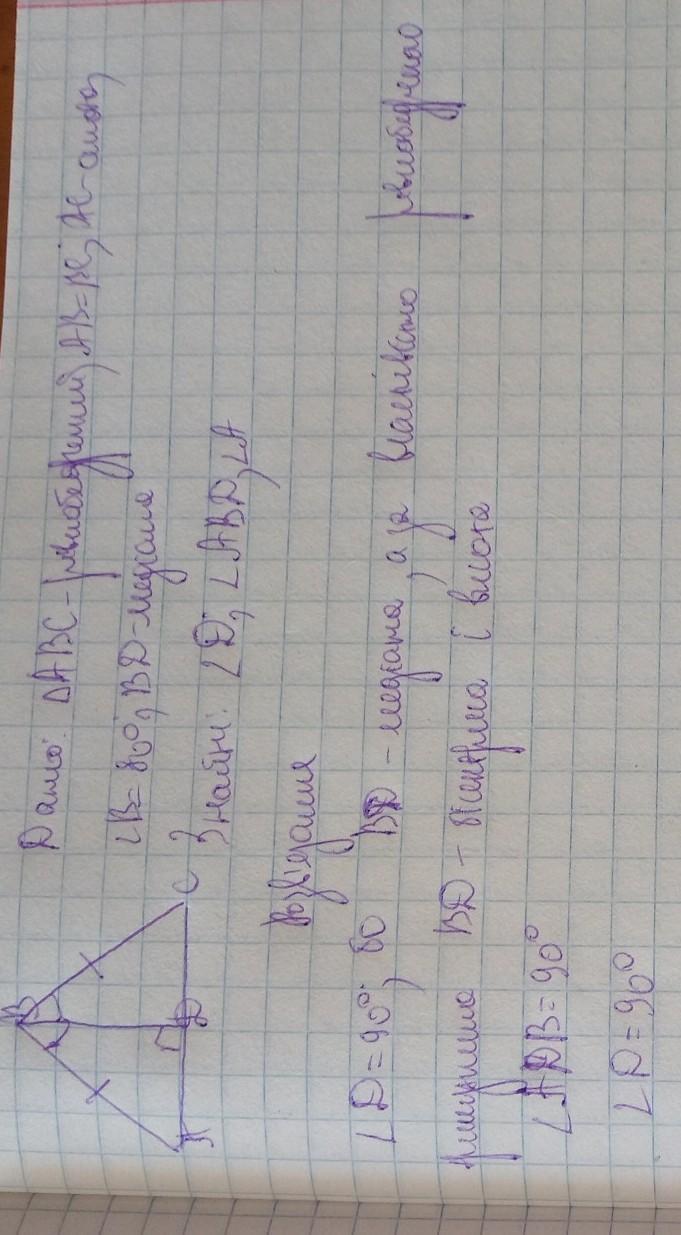 B
A
D
C
Дано: ΔABC - рівнобедрений, AB = BC, AC - основа,
∠B = 80°, BD - медіана
Знайти: ∠D, ∠ABD, ∠A
Розв'язання
∠D = 90°, бо BD - медіана, а за властивістю рівнобедреного
трикутника BD - бісектриса і висота
∠ADB = 90°
∠D = 90°